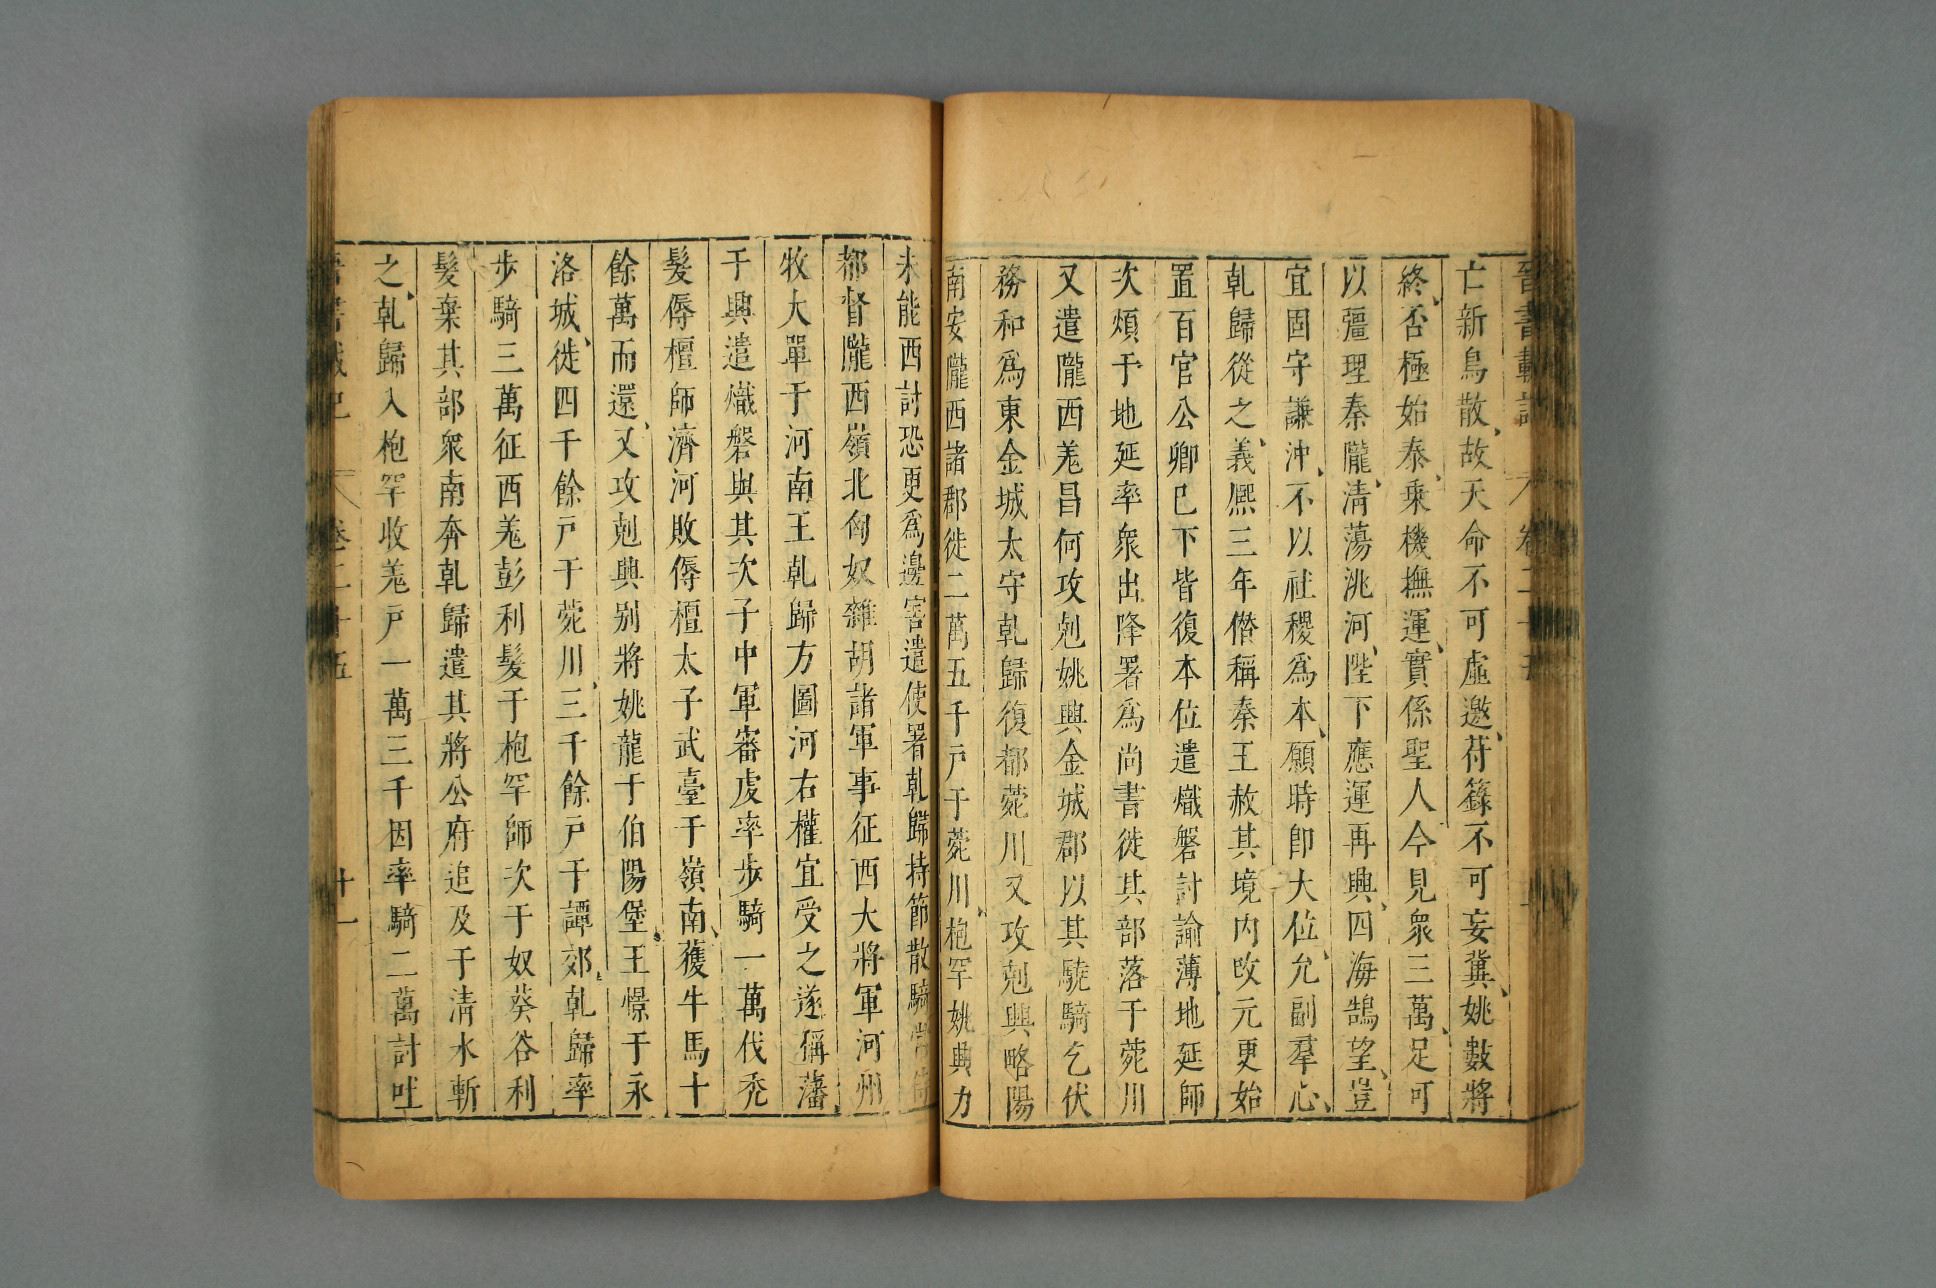 晉書載記 卷二十五
亡新鳥散故天命不可虛邀苻籙不可妄冀姚數將
終否極始泰乗機撫運實係聖人今見衆三萬足可
以彊理秦隴清蕩洮河陛下應運再興四海鵠望豈
宜固守謙沖不以社稷爲本願時卽大位允副羣心
乹歸從之義熈三年僭稱秦王赦其境内攺元更始
置百官公卿已下皆復本位遣熾磐討諭薄地延師
次煩于地延率衆出降署爲尚書徙其部落于菀川
又遣隴西羗昌何攻剋姚興金城郡以其驍騎乞伏
務和爲東金城太守乹歸復都菀川又攻剋興略陽
南安隴西諸郡徙二萬五千戶于菀川枹罕姚興力
未能西討恐更爲邊害遣使署乹歸持節散騎常侍
都督隴西嶺北匈奴雜胡諸軍事征西大將軍河州
牧大單于河南王乹歸方圖河右權宜受之遂稱藩
于興遣熾磐與其次子中軍審虔率步騎一萬伐禿
髮傉檀師濟河敗傉檀太子武臺于嶺南獲牛馬十
餘萬而還又攻剋興别將姚龍于伯陽堡王憬于永
洛城徙四千餘戸于菀川三千餘戸于譚郊乹歸率
步騎三萬征西羗彭利髮于枹罕師次于奴葵谷利
髮棄其部衆南奔乹歸遣其將公府追及于清水斬
之乹歸入枹罕收羗戸一萬三千因率騎二萬討吐
晉書載記 卷二十五 十一